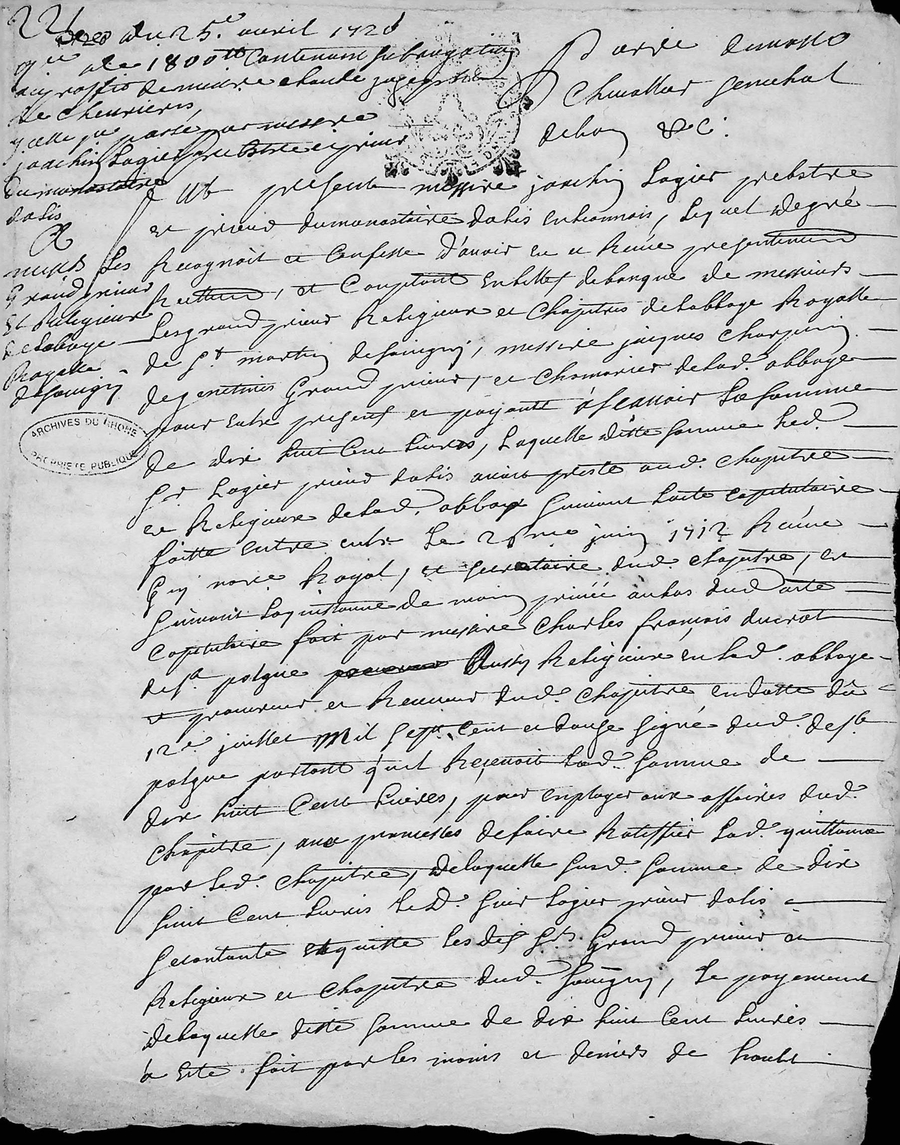 du 25e avril 1720
de 1800 tt Contenant Subrogation
au proffit de messire
de Chevrieres
passé par messire
joachin Logier prebstre et prieur
du monastaire
dalis
A
mess les
Grand prieur
Et Religieux
de Labaye
Royalle
de Savigny
ARCHIVES DU RHONE
PROPRIETE PUBLIQUE
Pardevant
Chevallier Senechal
de Lion &c.
fut present messire joachin Logier prebstre
et prieur du monastaire dalis en bionnois, Lequel de gré
Recognoit et Confesse d'avoir eu et Receu presentement
Reellement, et Comptant en billets de banque de messieurs
Les grand prieur Religieux et Chapitre de Labbaye Royalle
de St. martin de Savigny, messire jacques Charpin
de genetines Grand prieur, et Chamarier de Lad. abbaye
pour Eutx present et payant a scavoir La Somme
de dix huit Cent Livres, Laquelle ditte Somme Led.
Sr. Logier prieur dalis avoit presté aud. Chapitre
et Religieux de Lad. abbaye Suivant Lacte Capitulaire
faitte entre eutx Le juin 1712 Receu
Guy nore Royal, et Secretaire dud. chapitre, et
Suivant La quittance de main privée au bas dud. acte
Capitulaire fait par messire Charles françois ducrot
de Ste. polgue Religieux en Lad. abbaye
et procureur et Receveur dud. Chapitre en datte du
12e juillet Mil Sept Cent et douze Signé dud. de Ste.
polgue portant quil Recevoit Lad. Somme de
dix huit Cent Livres, pour employer aux affaires dud.
Chapitre, aux promesses de faire Ratiffier Lad. quittance
par Led. Chapitre, de Laquelle Susd. Somme de dix
huit Cent Livres Led. Sieur Logier prieur dalis
Se contante et quitte Les dits Srs. Grand prieur et
Religieux et Chapitre dud. Savigny, Le payement
de Laquelle ditte Somme de dix huit Cent Livres
a esté fait par les mains et deniers de haut